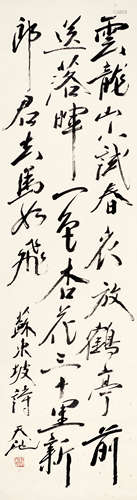 雲龍山下試春衣放鶴亭前
送落暉一色杏花三十里新
郎君去馬如飛
蘇東坡詩